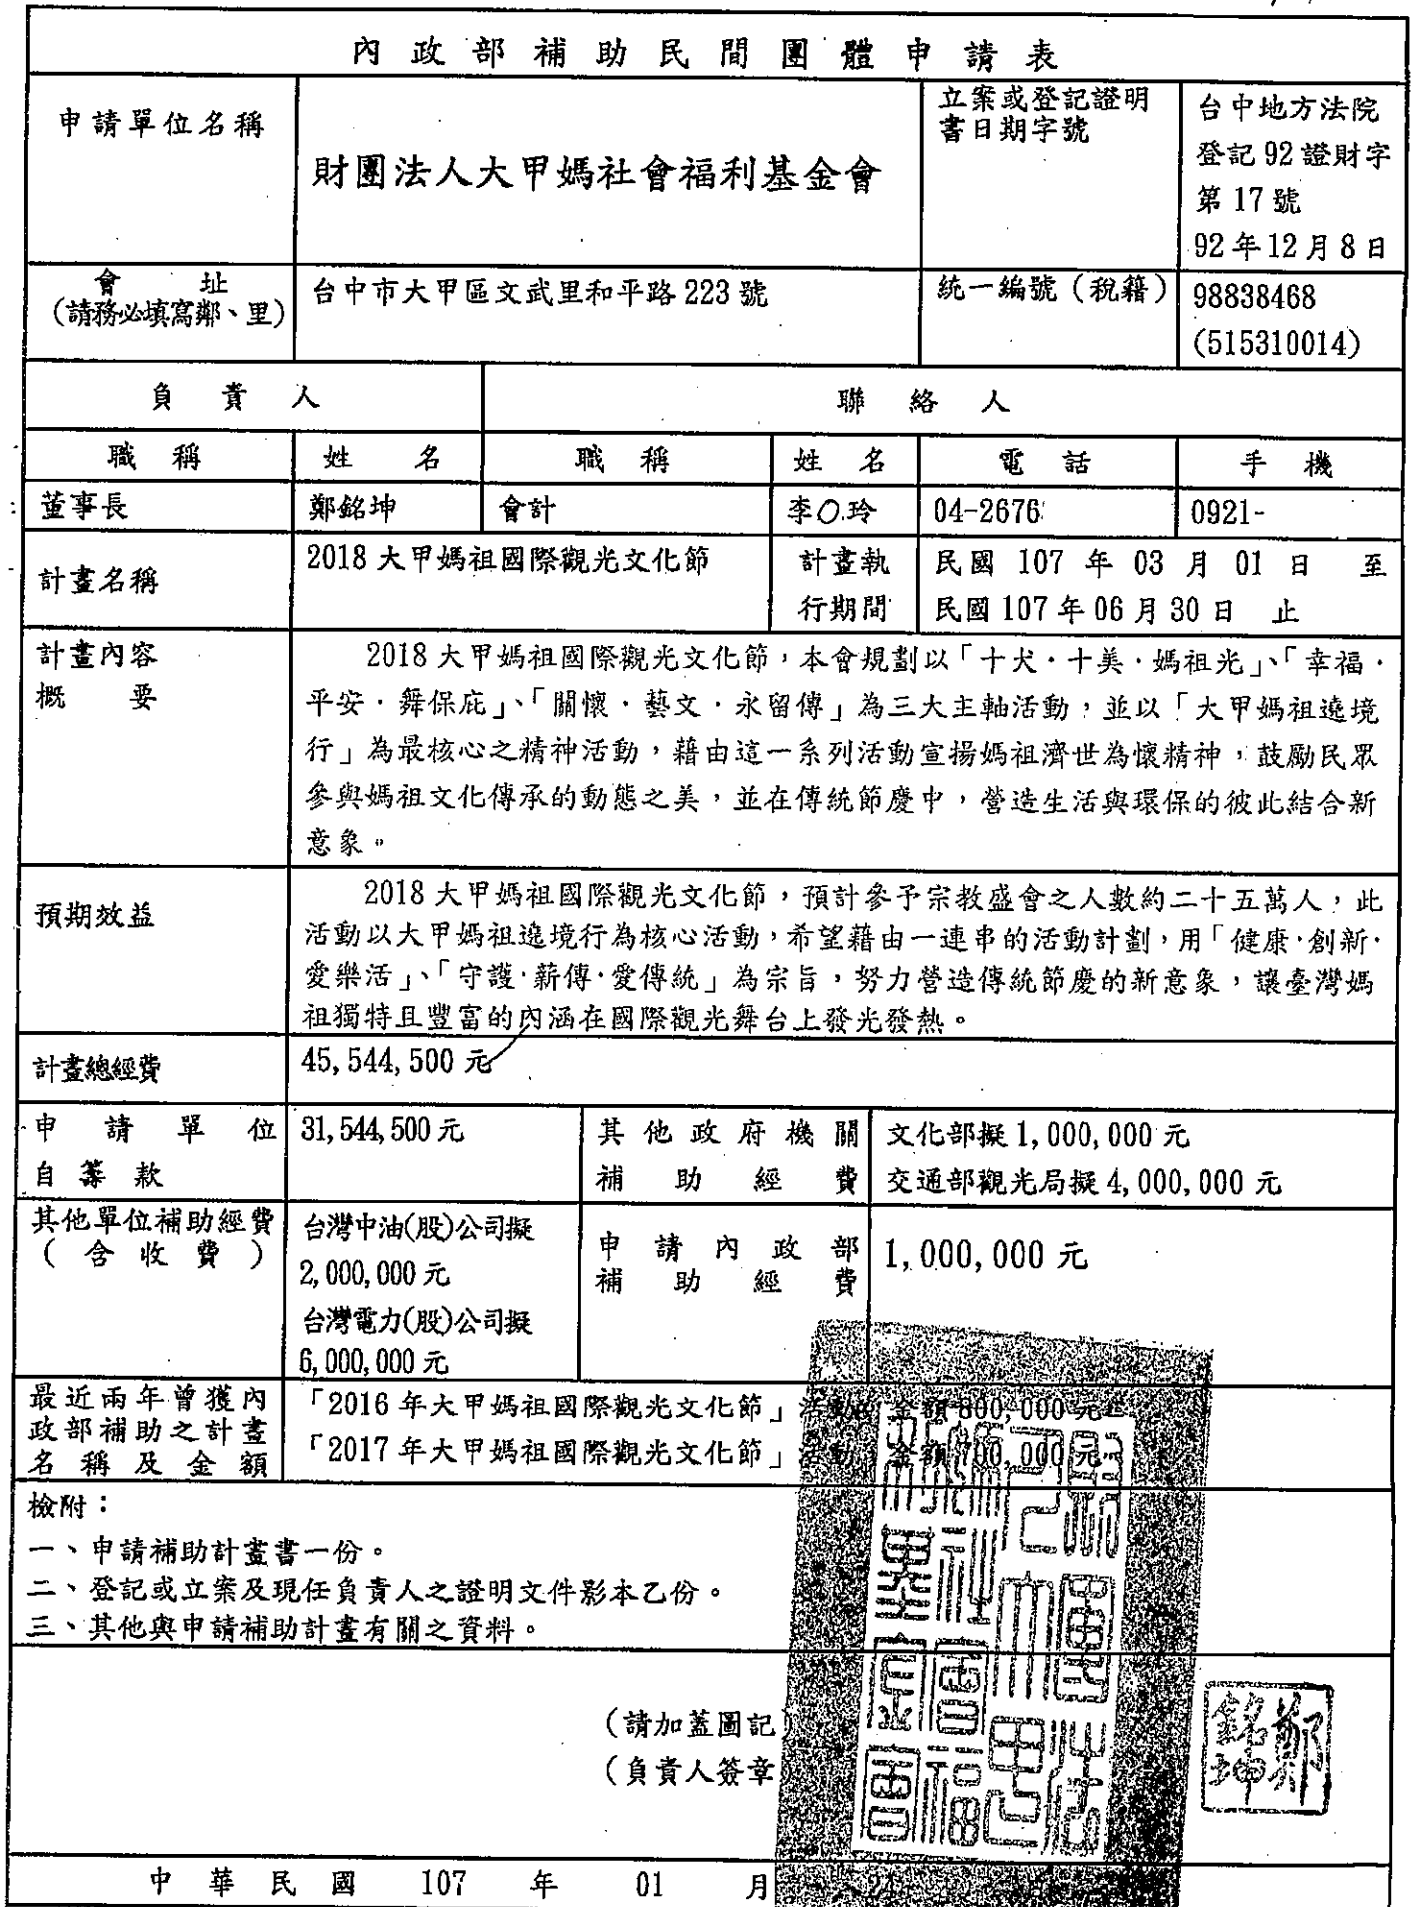 內政部補助民間團體申請表
申請單位名稱
財團法人大甲媽社會福利基金會
立案或登記證明
書日期字號
台中地方法院
登記92證財字
第17號
92年12月8日
會 址
(請務必填寫鄰、里)
台中市大甲區文武里和平路223號
統一編號(稅籍)
98838468
(515310014)
負 責 人
聯 絡 人
職 稱
姓 名
職 稱
姓 名
電 話
手 機
董事長
鄭銘坤
會計
李○玲
04-2676
0921-
計畫名稱
2018大甲媽祖國際觀光文化節
計畫執
行期間
民國 107 年 03 月 01 日 至
民國107年06月30日 止
計畫內容
概 要
2018大甲媽祖國際觀光文化節，本會規劃以「十犬·十美·媽祖光」、「幸福·
平安·舞保庇」、「關懷·藝文·永留傳」為三大主軸活動，並以「大甲媽祖遶境
行」為最核心之精神活動，藉由這一系列活動宣揚媽祖濟世為懷精神，鼓勵民眾
參與媽祖文化傳承的動態之美，並在傳統節慶中，營造生活與環保的彼此結合新
意象。
預期效益
2018大甲媽祖國際觀光文化節，預計參予宗教盛會之人數約二十五萬人，此
活動以大甲媽祖遶境行為核心活動，希望藉由一連串的活動計劃，用「健康·創新·
愛樂活」、「守護·薪傳·愛傳統」為宗旨，努力營造傳統節慶的新意象，讓臺灣媽
祖獨特且豐富的內涵在國際觀光舞台上發光發熱。
計畫總經費
45,544,500元
申請單位
自籌款
31,544,500元
其他政府機關
補助經費
文化部擬1,000,000元
交通部觀光局擬4,000,000元
其他單位補助經費
(含收費)
台灣中油(股)公司擬
2,000,000元
台灣電力(股)公司擬
6,000,000元
申請內政部
補助經費
1,000,000元
最近兩年曾獲內
政部補助之計畫
名稱及金額
「2016年大甲媽祖國際觀光文化節」活動 金額800,000元
「2017年大甲媽祖國際觀光文化節」活動 金額700,000元
檢附：
一、申請補助計畫書一份。
二、登記或立案及現任負責人之證明文件影本乙份。
三、其他與申請補助計畫有關之資料。
(請加蓋圖記)
(負責人簽章
鄭銘坤
中 華 民 國 107 年 01 月 24